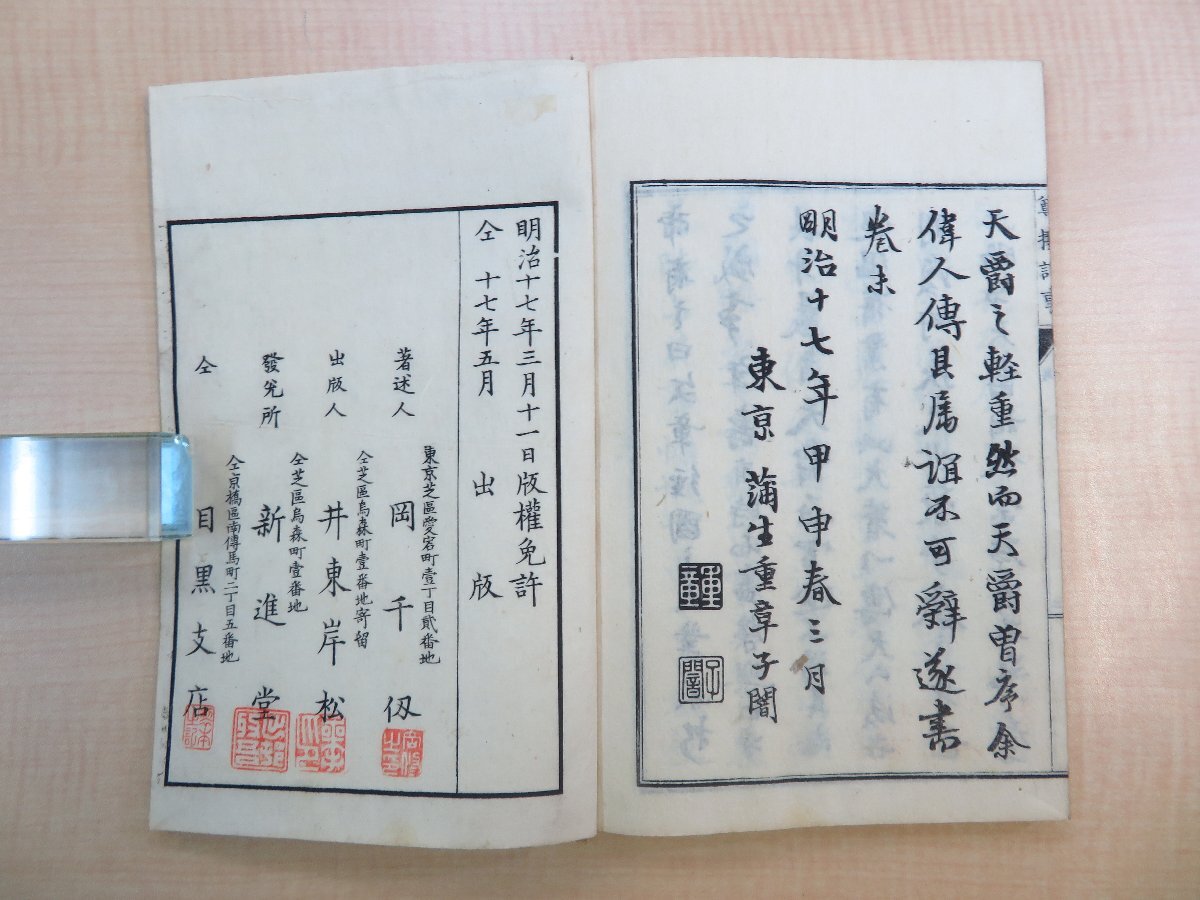 天爵之軽重然而天爵曽序余
偉人傳其属誼不可辭遂書
巻末
明治十七年甲申春三月
東京 蒲生重章子闇
重章
子闇
明治十七年三月十一日版權免許
仝 十七年五月 出版
著述人 東京芝區愛宕町壹丁目貮番地 岡千仭
出版人 仝芝區烏森町壹番地寄留 井東岸松
發兌所 仝芝區烏森町壹番地 新進堂
仝 仝京橋區南傳馬町二丁目五番地 目黒支店